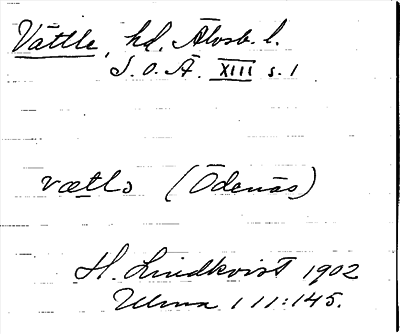 Vättle, hd, Älvsb. l.
S. O. Ä. XIII s. 1
vætlə (Ödenäs)
H. Lindkvist 1902
Ulma 111:145.